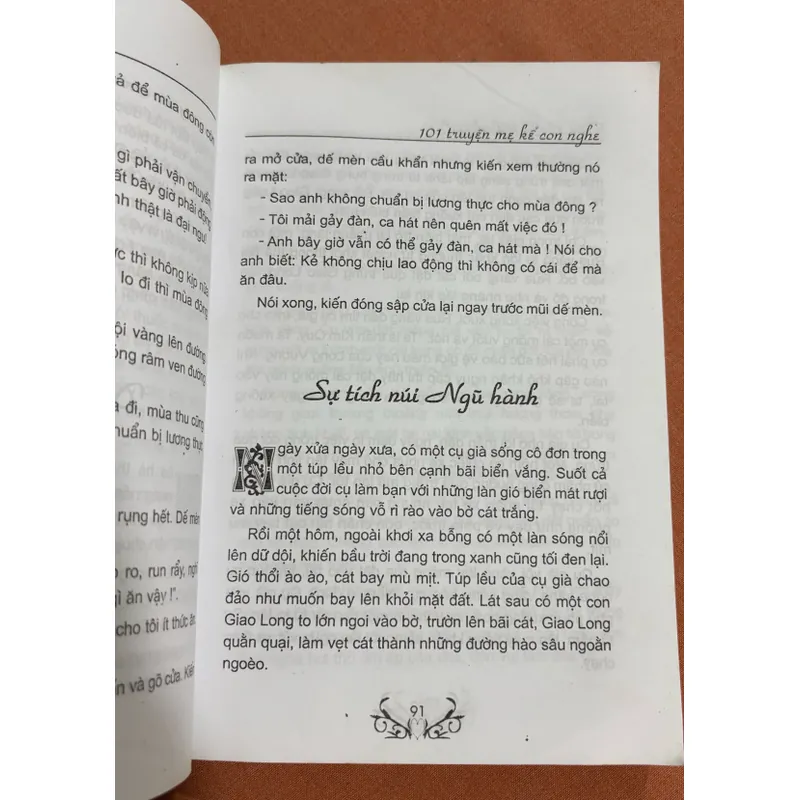 ả để mùa đông còn
gì phải vận chuyển
ất bây giờ phải động
nh thật là đại ngu!
ực thì không kịp nữa
lo đi thì mùa đông
ội vàng lên đường
óng râm ven đường
a đi, mùa thu cũng
huẩn bị lương thực
rụng hết. Dế mèn
o ro, run rẩy, nghĩ
gì ăn vậy !".
cho tôi ít thức ăn
n và gõ cửa. Kiến
101 truyện mẹ kể con nghe
ra mở cửa, dế mèn cầu khẩn nhưng kiến xem thường nó
ra mặt:
- Sao anh không chuẩn bị lương thực cho mùa đông ?
- Tôi mải gảy đàn, ca hát nên quên mất việc đó !
- Anh bây giờ vẫn có thể gảy đàn, ca hát mà ! Nói cho
anh biết: Kẻ không chịu lao động thì không có cái để mà
ăn đâu.
Nói xong, kiến đóng sập cửa lại ngay trước mũi dế mèn.
Sự tích núi Ngũ hành
Ngày xửa ngày xưa, có một cụ già sống cô đơn trong
một túp lều nhỏ bên cạnh bãi biển vắng. Suốt cả
cuộc đời cụ làm bạn với những làn gió biển mát rượi
và những tiếng sóng vỗ rì rào vào bờ cát trắng.
Rồi một hôm, ngoài khơi xa bỗng có một làn sóng nổi
lên dữ dội, khiến bầu trời đang trong xanh cũng tối đen lại.
Gió thổi ào ào, cát bay mù mịt. Túp lều của cụ già chao
đảo như muốn bay lên khỏi mặt đất. Lát sau có một con
Giao Long to lớn ngoi vào bờ, trườn lên bãi cát, Giao Long
quằn quại, làm vẹt cát thành những đường hào sâu ngoằn
ngoèo.
91